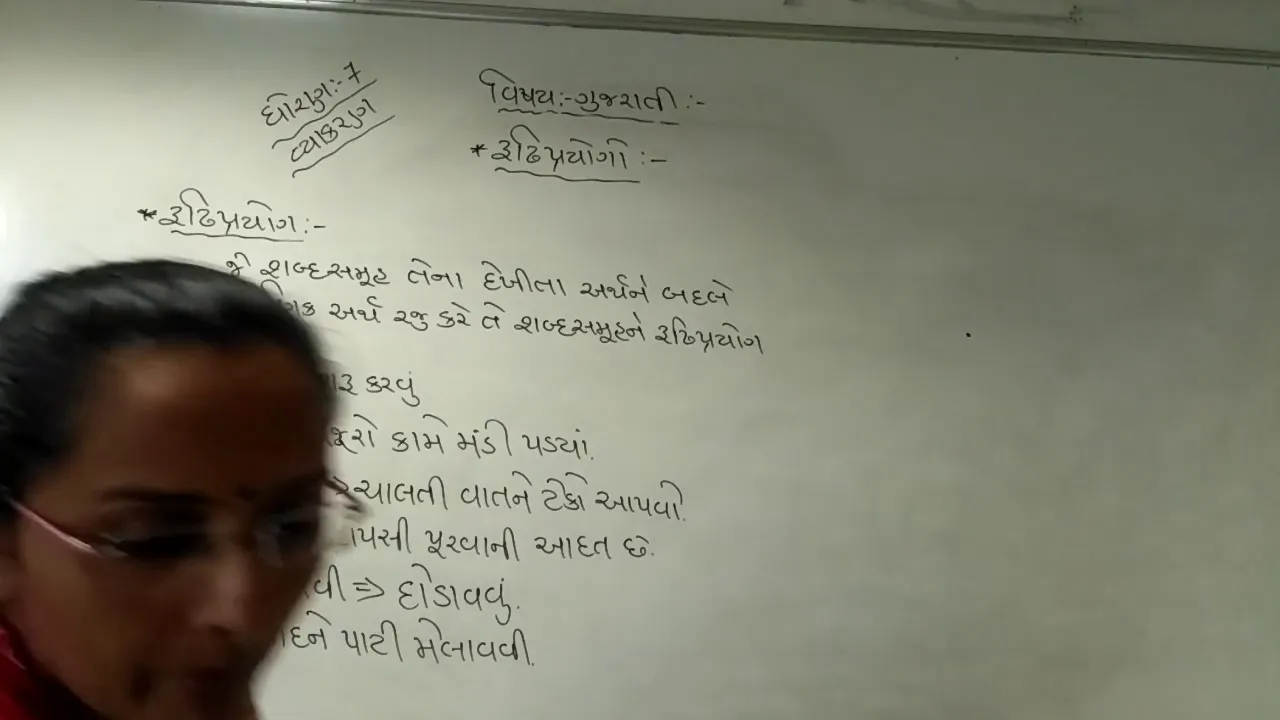 ધોરણ:-7
વ્યાકરણ
વિષય:-ગુજરાતી:-
*રૂઢિપ્રયોગો:-
*રૂઢિપ્રયોગ:-
જે શબ્દસમૂહ તેના દેખીતા અર્થને બદલે
અર્થ રજુ કરે તે શબ્દસમૂહને રૂઢિપ્રયોગ
કરવું
કામે મંડી પડયાં.
ચાલતી વાતને ટેકો આપવો.
પૂરવાની આદત છે.
⇒ દોડાવવું.
પાટી મેલાવવી.